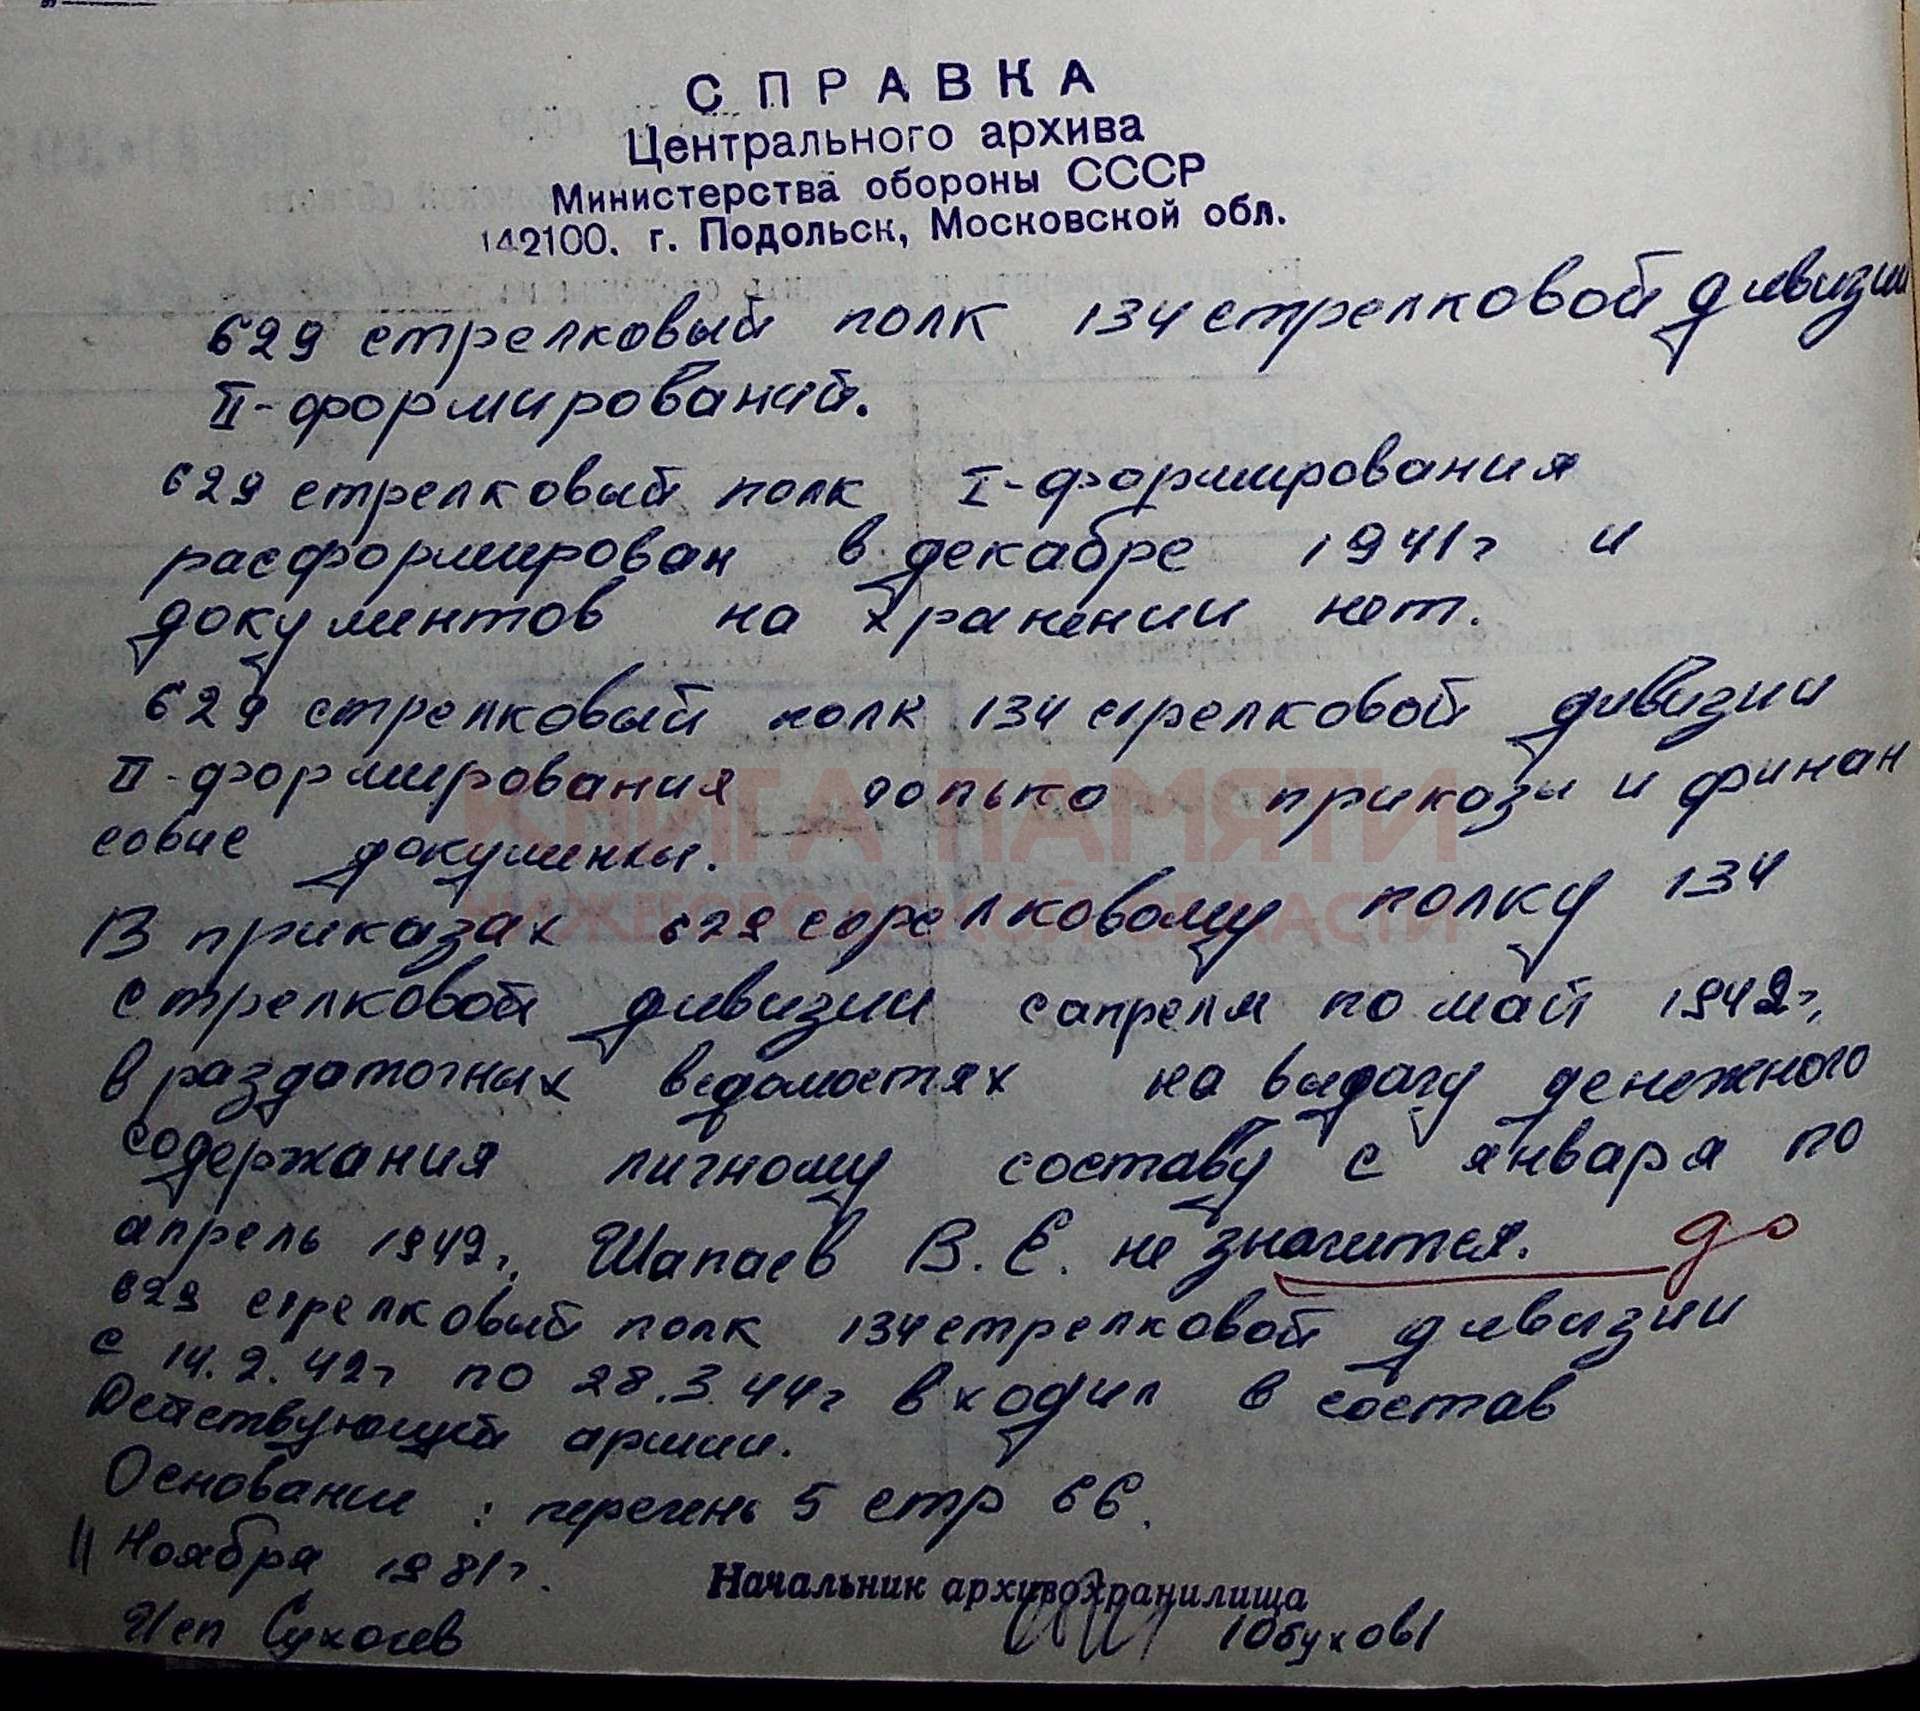 СПРАВКА
Центрального архива
Министерства обороны СССР
142100, г. Подольск, Московской обл.
629 стрелковый полк 134 стрелковой дивизии
II-формирований.
629 стрелковый полк I-формирования
расформирован в декабре 1941г и
документов на хранении нет.
629 стрелковый полк 134 стрелковой дивизии
II-формирования только приказы и финан
совые документы.
КНИГА ПАМЯТИ
НИЖЕГОРОДСКОЙ ОБЛАСТИ
В приказах 629 стрелковому полку 134
стрелковой дивизии с апреля по май 1942г,
в раздаточных ведомостях на выдачу денежного
содержания личному составу с января по
апрель 1942г, Шапаев В.Е. не значится.
629 стрелковый полк 134 стрелковой дивизии
с 14.2.42г по 28.3.44г входил в состав
Действующей армии.
Основание: перечень 5 стр 66.
11 Ноября 1981г.
Начальник архивохранилища
Исп
/Обухов/